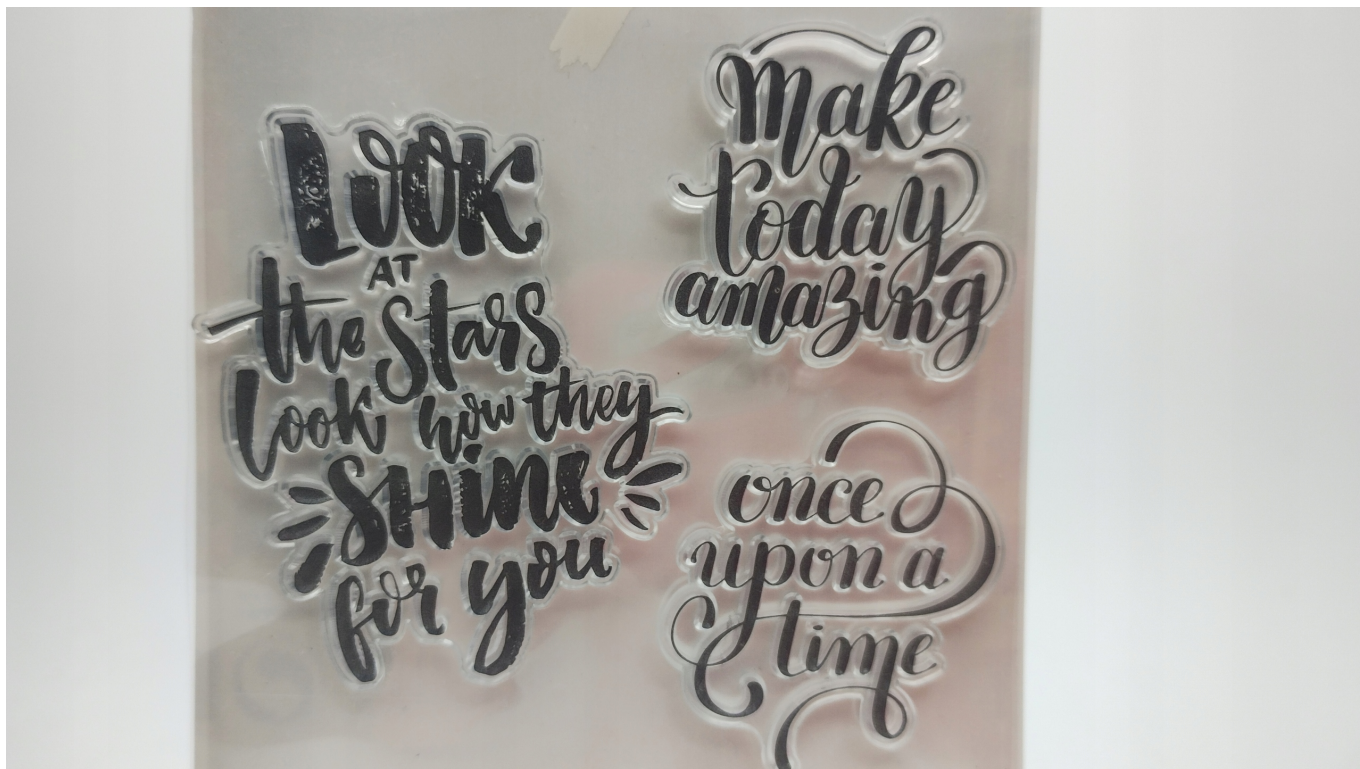 LOOK
AT
the stars
look how they
SHINE
for you
make
today
amazing
once
upon a
time